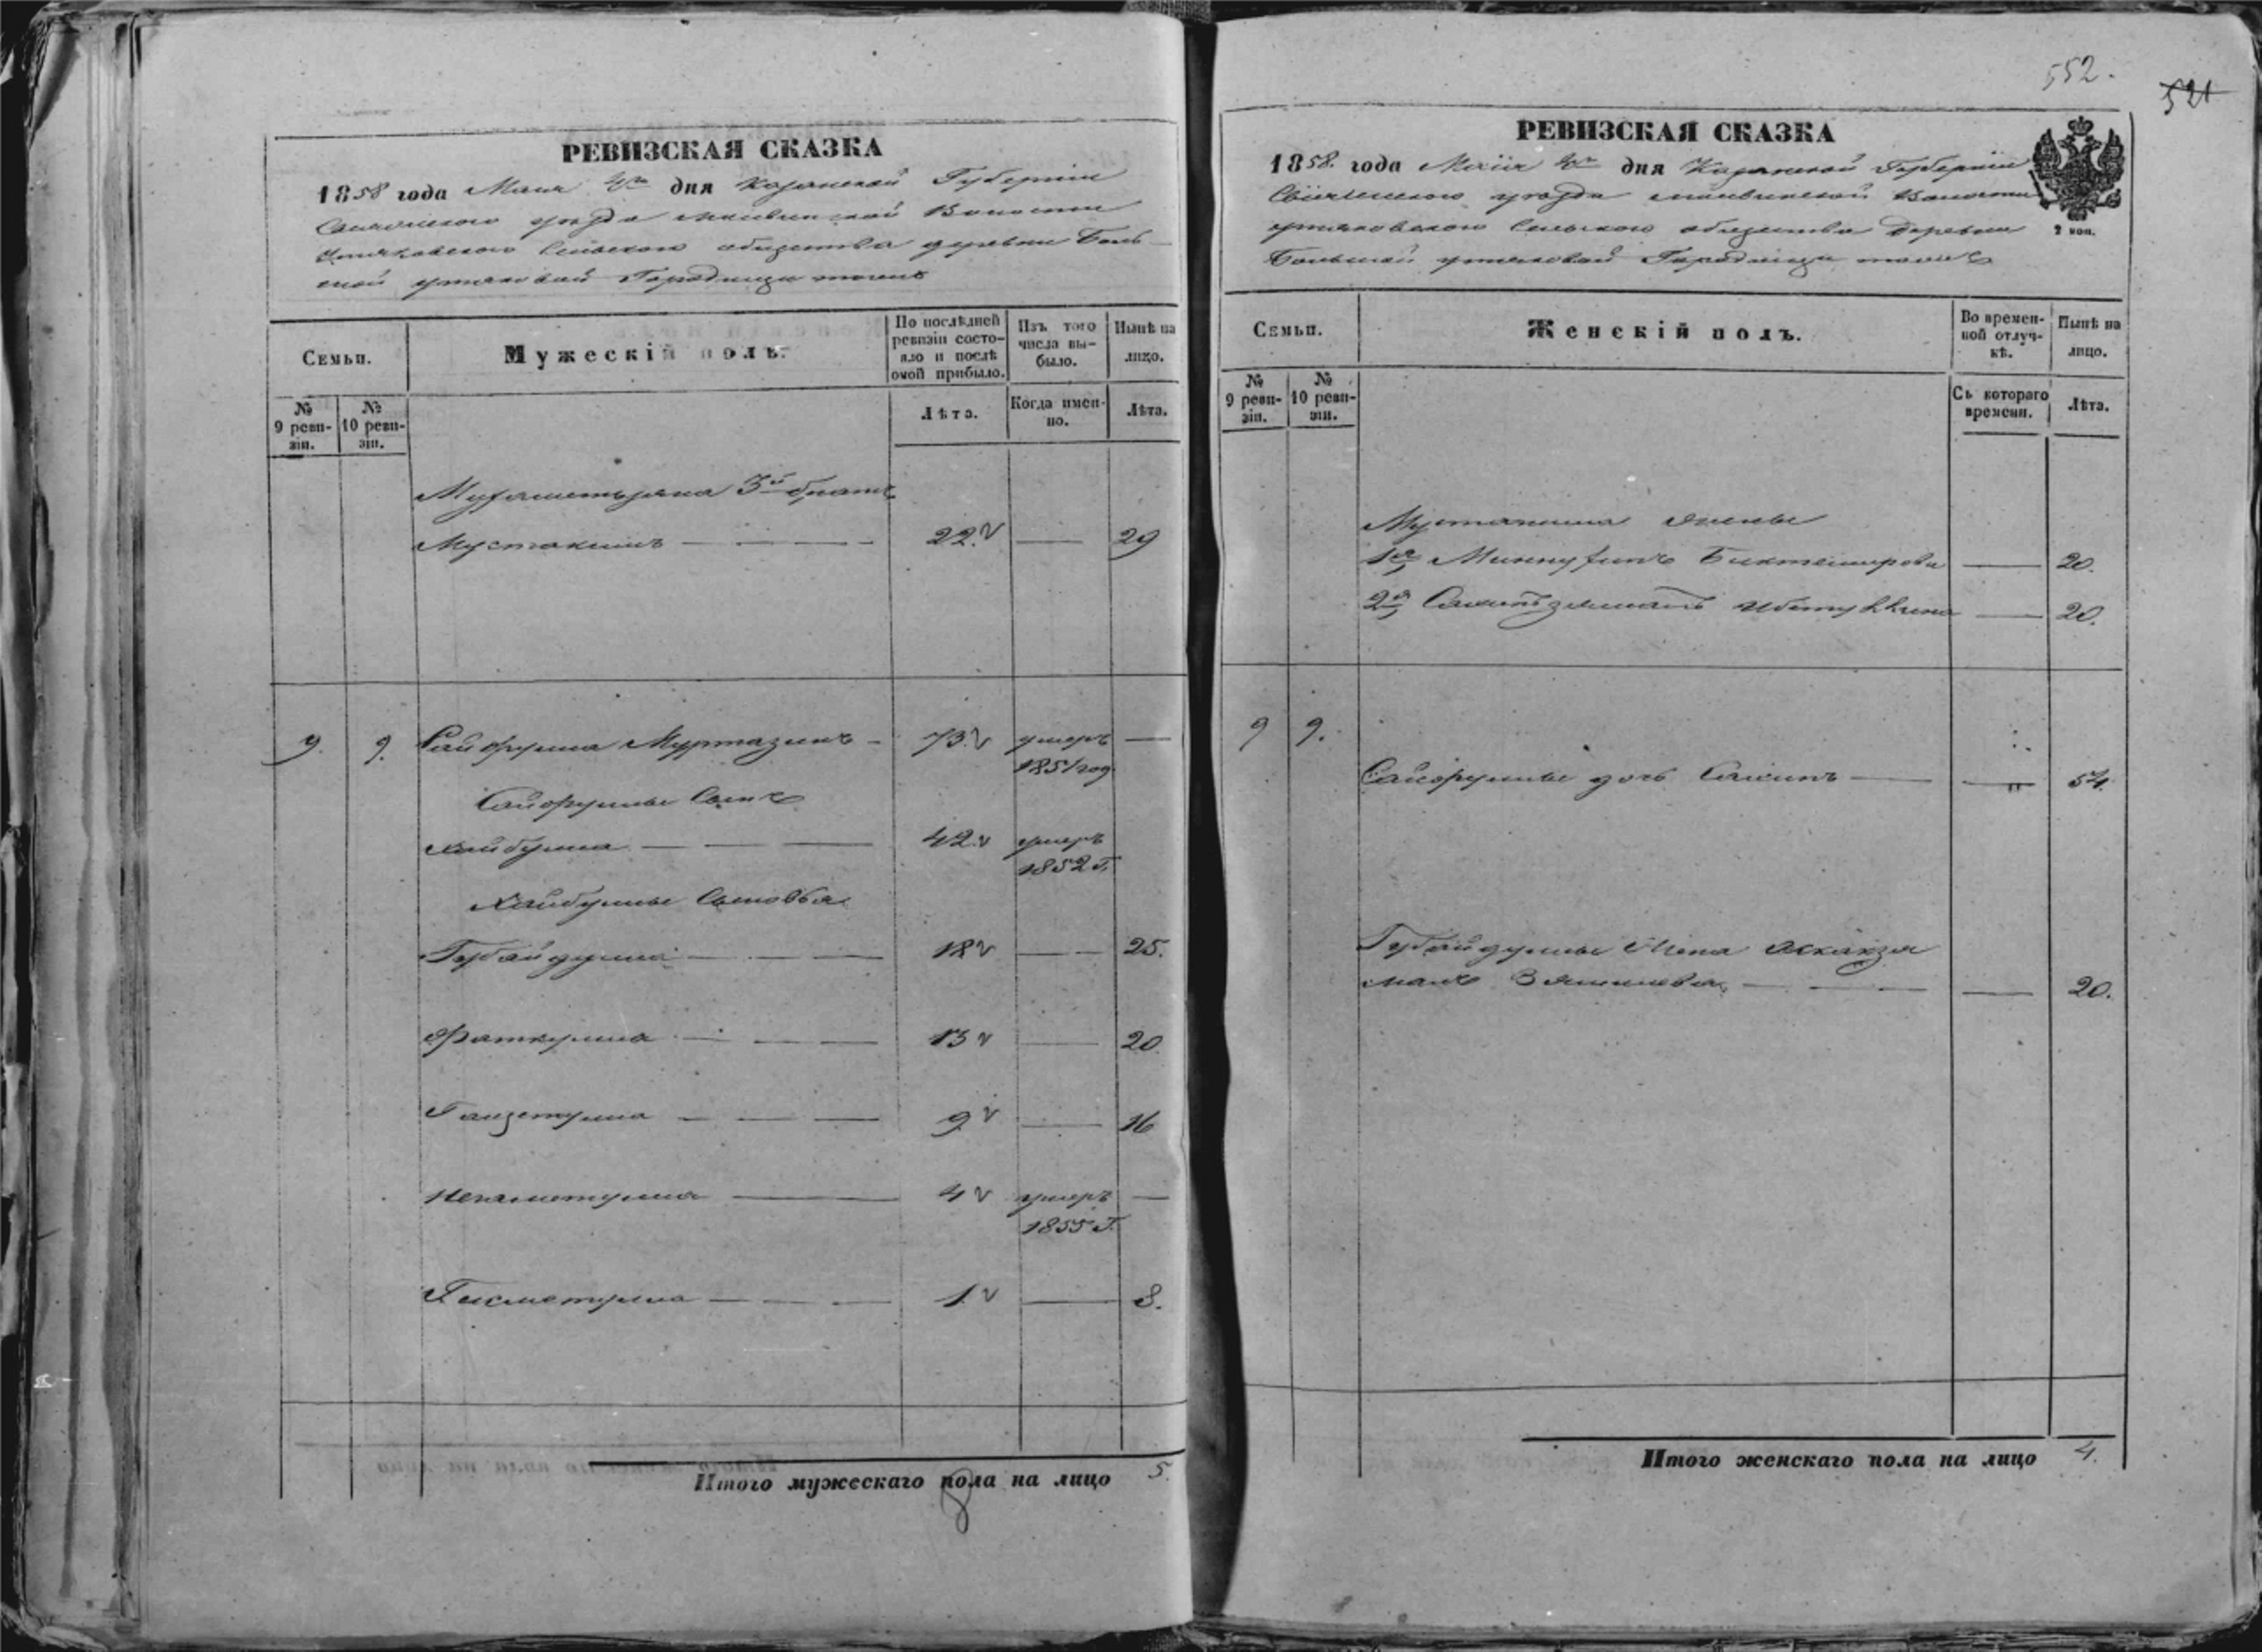 552.
521
РЕВИЗСКАЯ СКАЗКА
1858 года Мая дня Казанской Губернии
уезда Волости
Сельского общества деревни Боль-
шой Утяковой Городищи тоже
Семьи.
Мужескій полъ.
По послѣдней ревизіи состояло и послѣ оной прибыло.
Изъ того числа выбыло.
Нынѣ на лицо.
№ 9 ревизіи.
№ 10 ревизіи.
Лѣта.
Когда именно.
Лѣта.
Мухаметьзяна 3й братъ
Мустакимъ 22 29
9. 9. Сайфулла Муртазинъ 73 умеръ 1851 год
Сайфуллы сынъ
Хайбулла 42 умеръ 1852 г.
Хайбуллы сыновья
Губайдулла 18 25.
Фаткулла 13 20
Гайзетулла 9 16
Негаметулла 4 умеръ 1855 г.
Гисметулла 1 8.
Итого мужескаго пола на лицо 5.
8
РЕВИЗСКАЯ СКАЗКА
1858. года Маія дня Казанской Губерніи
Свіяжского уезда Волости
Утяковского Сельского общества Деревни
Большой Утяковой Городищи тоже
2 коп.
Семьи.
Женскій полъ.
Во временной отлучкѣ.
Нынѣ на лицо.
№ 9 ревизіи.
№ 10 ревизіи.
Съ котораго времени.
Лѣта.
Мустакима жены
1я Биктемирова 20.
2я 20.
9 9.
Сайфуллы дочь 54.
Губайдуллы жена
20.
Итого женскаго пола на лицо 4.